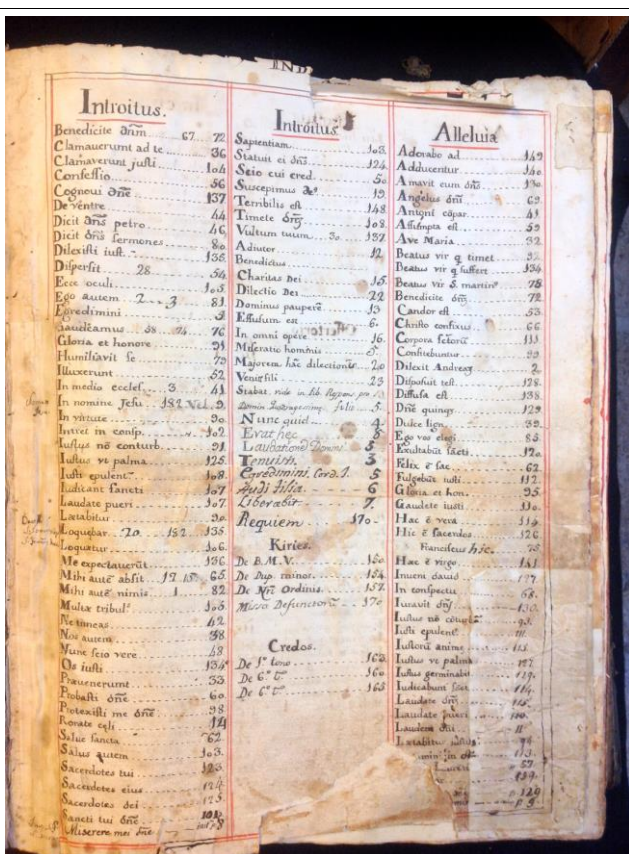 IND
Introitus.
Benedicite dñm 67 72
Clamauerunt ad te 36
Clamaverunt justi 104
Confessio 56
Cognoui dñe 137
De ventre 44
Dicit dñs petro 46
Dicit dñs sermones 80
Dilexisti iust. 136
Dispersit 28 54
Ecce oculi 105
Ego autem 2 3 81
Egredimini 3
Gaudeamus 58 74 76
Gloria et honore 91
Humiliavit se 73
Illuxerunt 52
In medio eccles. 3 41
In nomine Jesu 182 Vel. 9
In virtute 90
Intret in consp. 102
Iustus nō conturb. 91
Iustus vt palma 125
Iusti epulent. 108
Iudicant sancti 107
Laudate pueri 107
Lætabitur 90
Loquebar 20. 182 135
Loquatur 106
Me expectauerūt 136
Mihi autē absit 17 65
Mihi autē nimis 1 82
Multæ tribul. 106
Ne timeas 42
Nos autem 38
Nunc scio vere 48
Os iusti 134
Prævenerunt 33
Probasti dñe 60
Protexisti me dñe 98
Rorate cęli 14
Salue sancta 62
Salus autem 103
Sacerdotes tui 123
Sacerdotes eius 124
Sacerdotes dei 125
Sancti tui dñe 101
Miserere mei dñe 8
Introitus
Sapientiam 103
Statuit ei dñs 124
Scio cui cred. 50
Suscepimus 19
Terribilis est 148
Timete dñm 108
Vultum tuum 30 137
Adiutor 12
Benedictus
Charitas Dei 15
Dilectio Dei 22
Dominus paupere 13
Effusum est 6
In omni opere 16
Miseratio hominis 5
Majorem hāc dilectionē 20
Venite filii 23
Stabat. vide in lib. Respons. pro 13
Nunc quid 4
Erat hęc 8
Laudatione Domini 5
Tenuisti 3
Egredimini, Cord. J. 5
Audi filia 6
Liberabit 7
Requiem 170
Kiries.
De B.M.V. 150
De Dup. minor. 154
De Nr̃i Ordinis 157
Missa Defunctorū 170
Credos.
De 1º tono 163
De 6º t. 160
De 6º t. 165
Alleluia
Adorabo ad 149
Adducentur 140
Amavit eum dñs 130
Angelus dñi 69
Antoni cōpar 41
Assumpta est 59
Ave Maria 32
Beatus vir q timet
Beatus vir q suffert 134
Beatus vir S. martiñ 78
Benedicite dñm 72
Candor est 53
Christo confixus 66
Corpora sctorū 111
Confitebuntur 99
Dilexit Andreas 2
Disposui test. 128
Diffusa est 138
Dñe quinq 129
Dulce lign. 39
Ego vos elegi 85
Exultabūt sācti 120
Felix ē sac. 62
Fulgebūt iusti 112
Gloria et hon. 95
Gaudete iusti 110
Hæc ē vera 114
Hic ē sacerdos 126
Franciscus hic. 75
Hæc ē virgo 141
Inueni dauid 127
In conspectu 68
Iuravit dñs 130
Iustus nō cōturb. 93
Iusti epulent. 111
Iustorū animę 113
Iustus vt palma 127
Iustus germinabit 119
Iudicabunt sāct. 114
Laudate dñm 115
Laudate pueri 100
Laudem
Lætabitur iustus 94
113
57
139
129
9